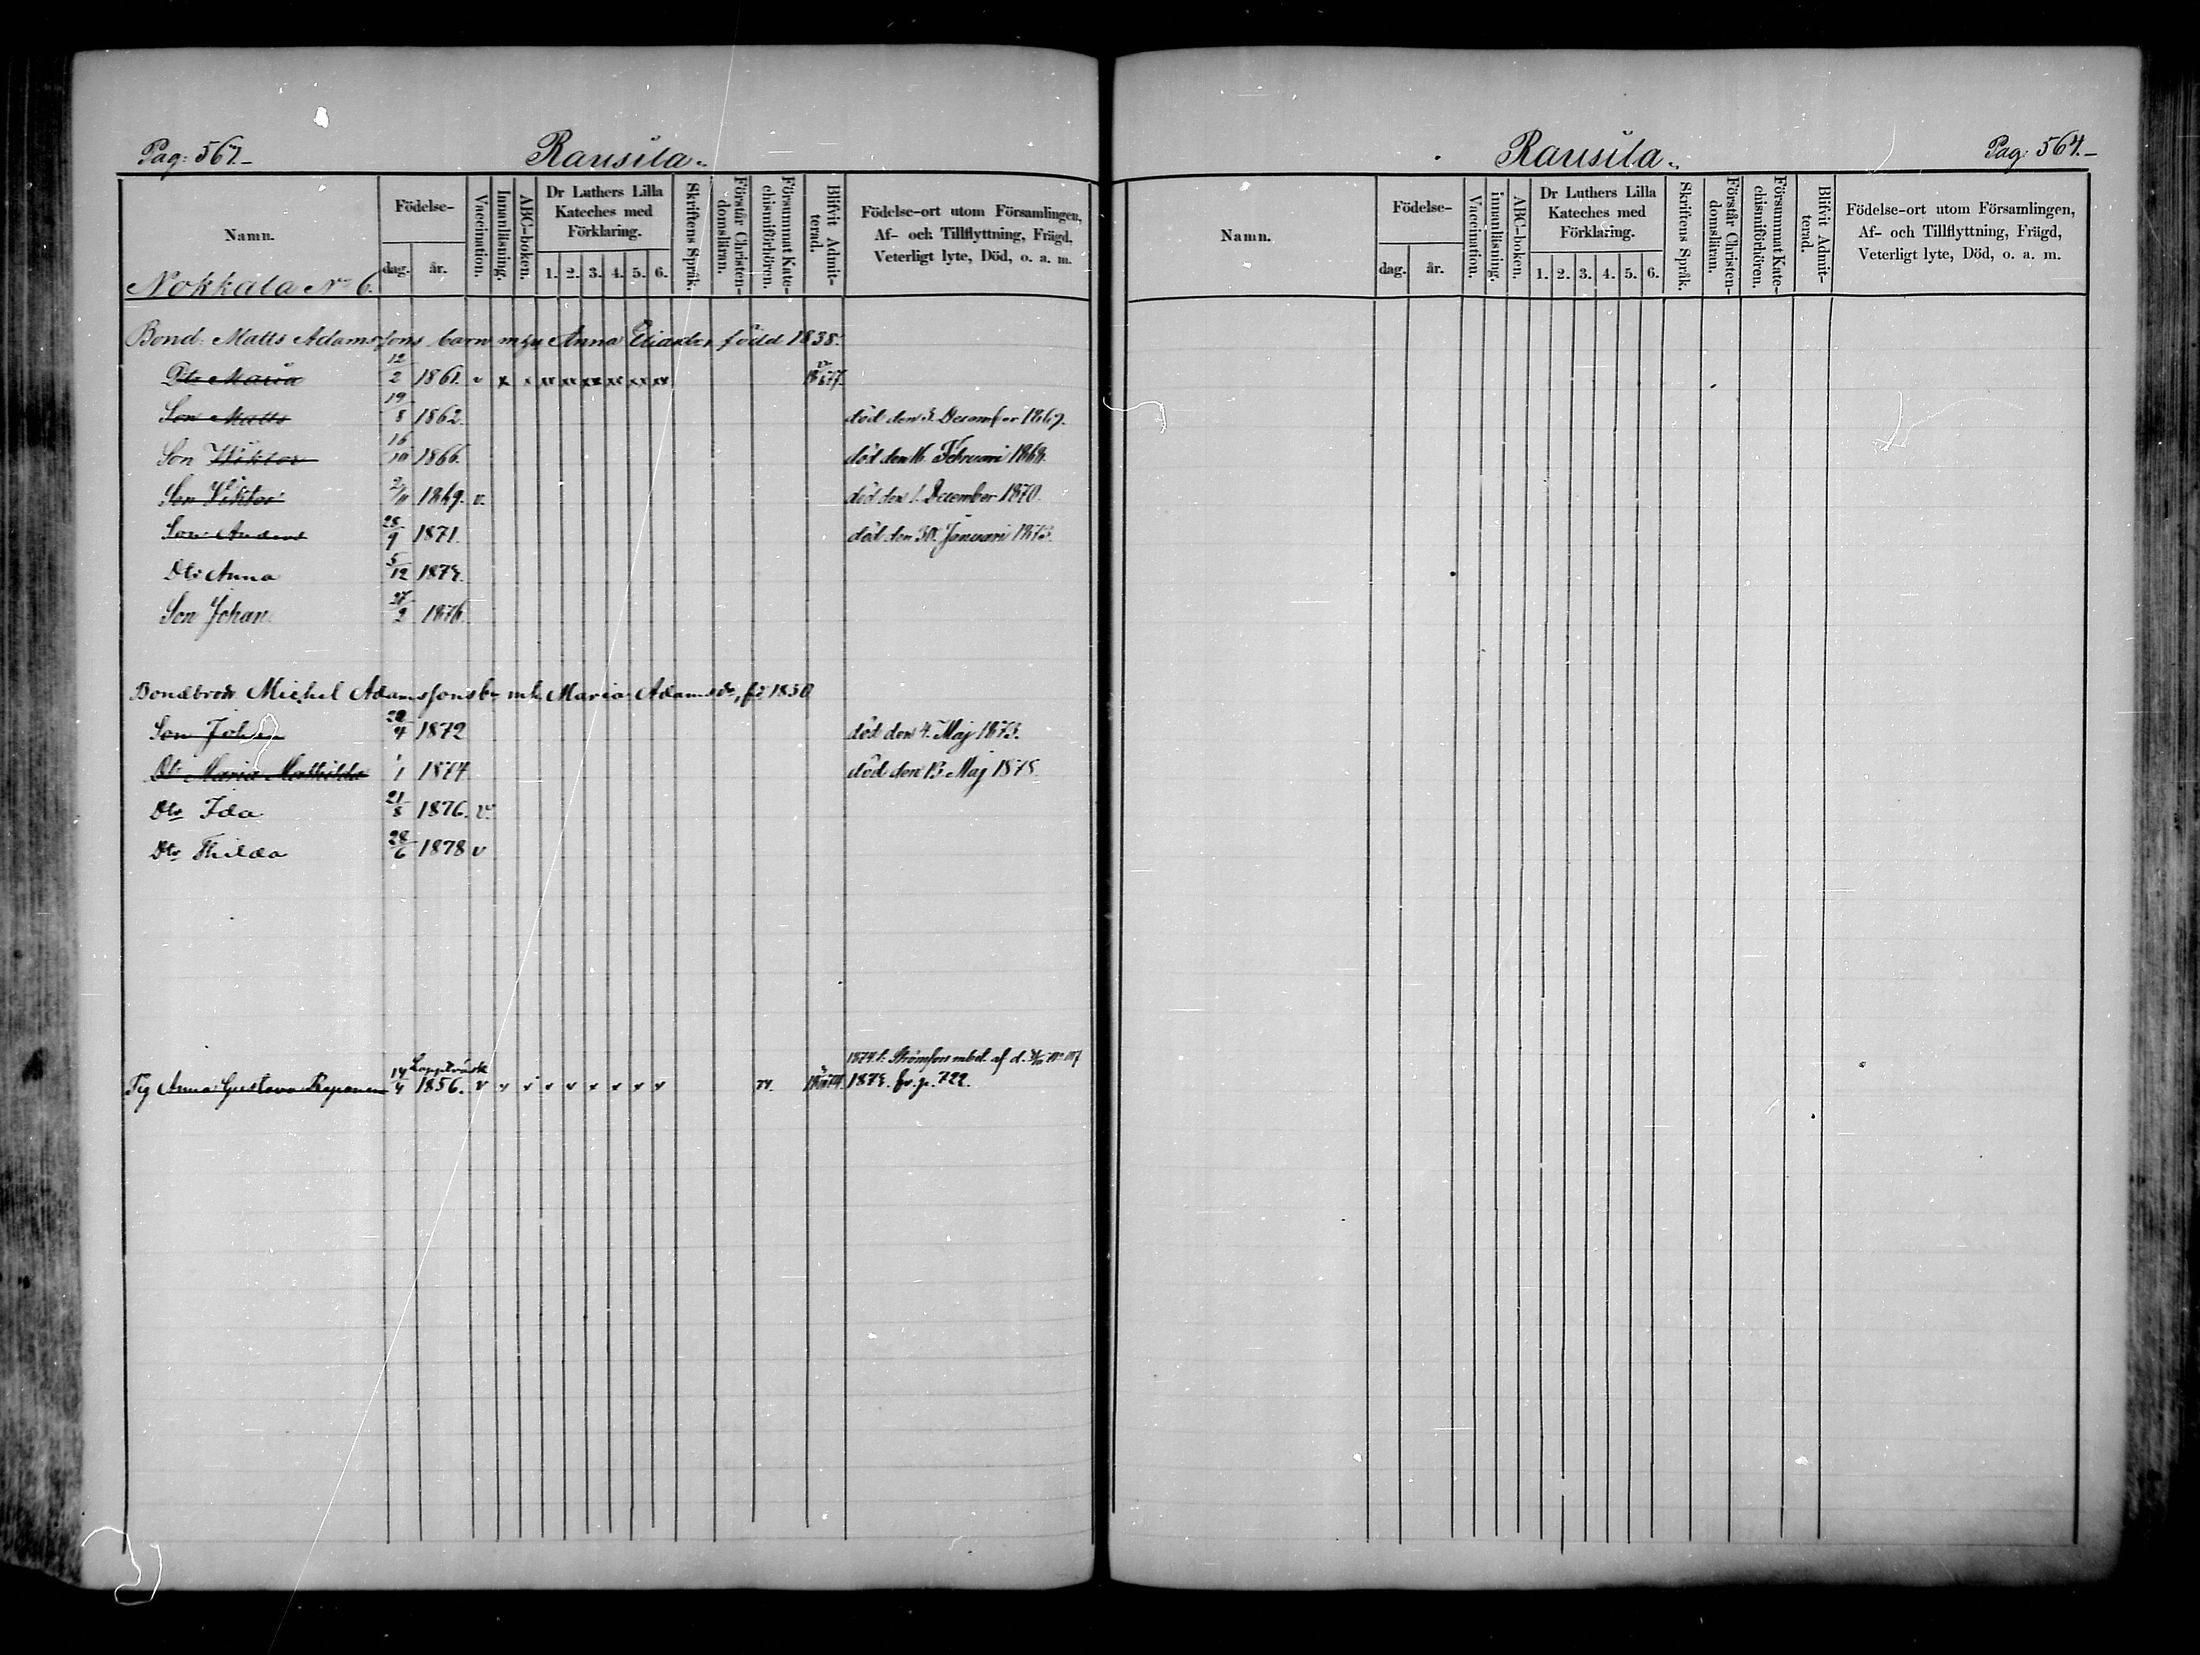 Pag: 567.
Rausila.
Namn.
Födelse-
dag. år.
Vaccination.
Innanläsning.
ABC-boken.
Dr Luthers Lilla
Kateches med
Förklaring.
1. 2. 3. 4. 5. 6.
Skriftens Språk.
Förstår Christen-
domsläran.
Försummat Kate-
chismiförhören.
Blifvit Admit-
terad.
Födelse-ort utom Församlingen,
Af- och Tillflyttning, Frägd,
Veterligt lyte, Död, o. a. m.
Nokkala No 6.
Bond. Matts Adamssons barn m h u Anna född 1838.
Dtr Maria 12/2 1861. v x x xx xx xx xx xx xx
Son Matts 19/8 1862. död den 3. December 1867.
Son Wiktor 16/10 1866. död den 16. Februari 1868.
Son Viktor 2/11 1869. v. död den 1. December 1870.
Son Anders 28/9 1871. död den 30. Januari 1873.
Dtr Anna 5/12 1873.
Son Johan 27/2 1876.
Bondbrodr Michel Adamssons br mh Maria Adamsdr, fö 1850
Son Johan 4 1872 död den 4. Maj 1873.
Dtr Maria Mathilda 1/1 1874 död den 13. Maj 1875.
Dtr Ida 21/8 1876. v.
Dtr Thilda 28/6 1878 v
Lappträsk
1874 f. Strömfors mbet. af d.
Pig Anna Gustava 14/4 1856. v v v v v v v v v 1875. fr. p. 722.
Rausila.
Pag: 564.
Namn.
Födelse-
dag. år.
Vaccination.
innanläsning.
ABC-boken.
Dr Luthers Lilla
Kateches med
Förklaring.
1. 2. 3. 4. 5. 6.
Skriftens Språk.
Förstår Christen-
domsläran.
Försummat Kate-
chismiförhören.
Blifvit Admit-
terad.
Födelse-ort utom Församlingen,
Af- och Tillflyttning, Frägd,
Veterligt lyte, Död, o. a. m.